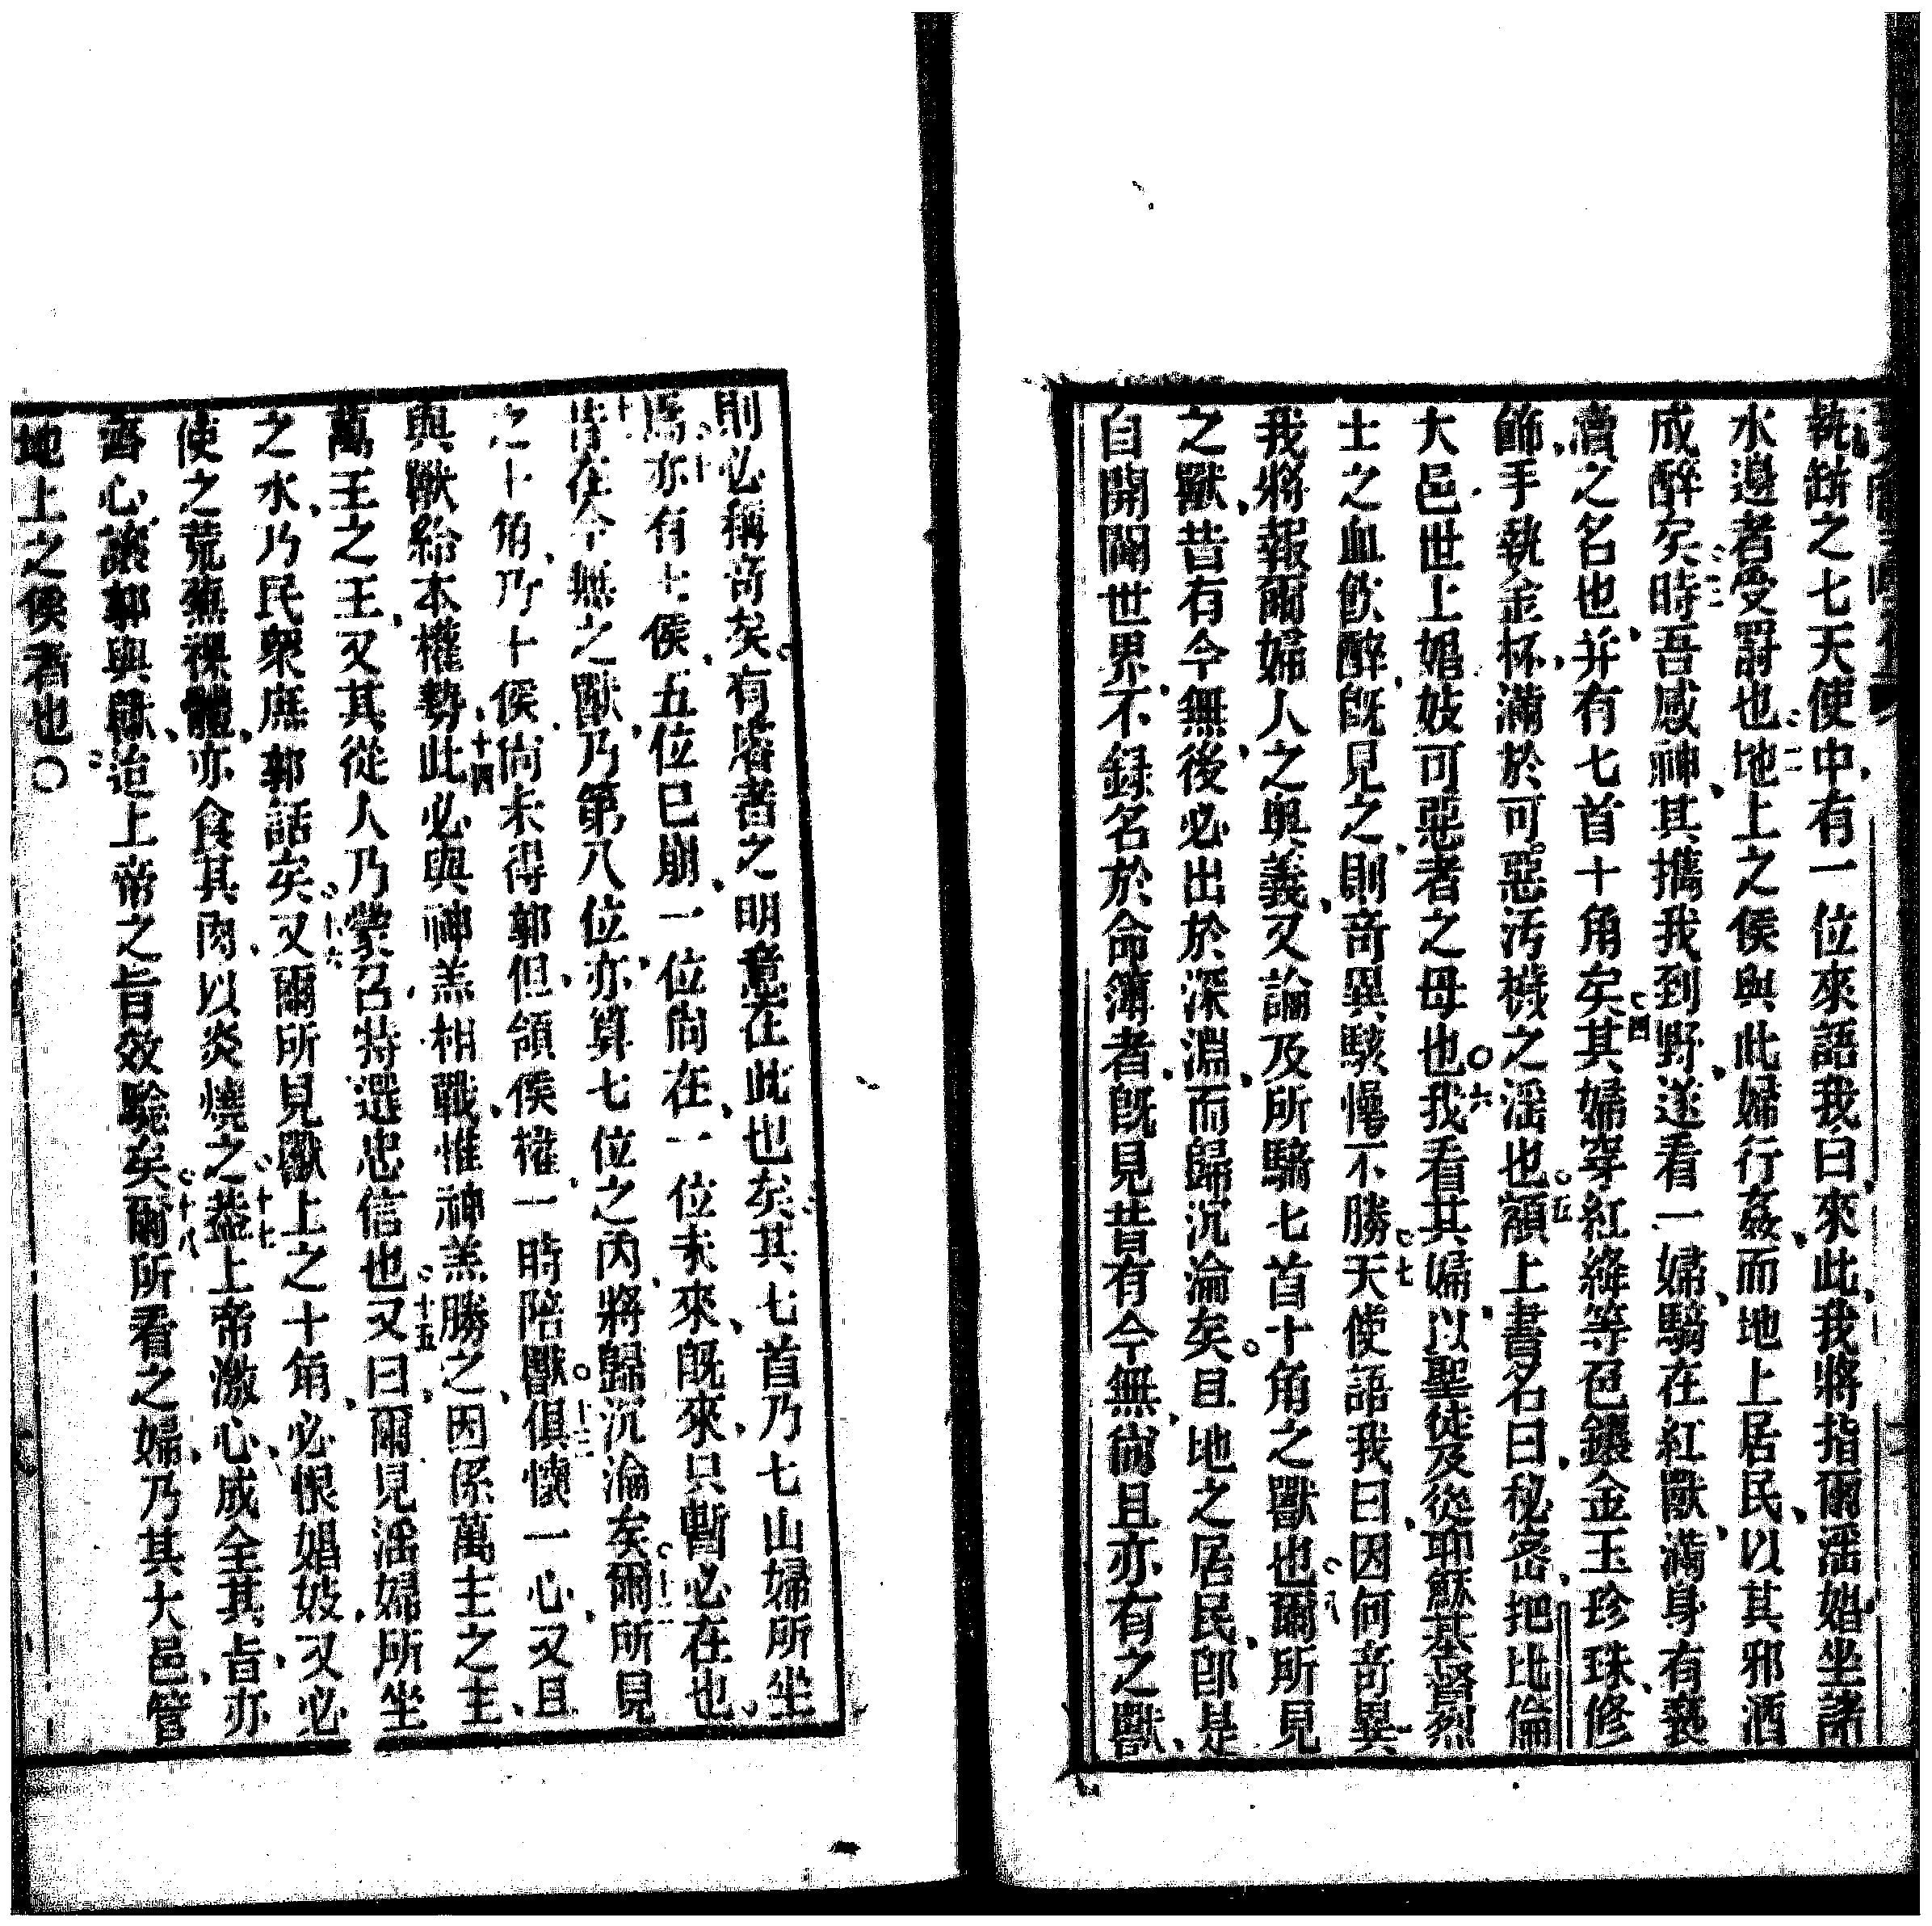 執缾之七天使中有一位來語我曰來此我將指爾淫娼坐諸
水邊者受罰也二地上之侯與此婦行姦而地上居民以其邪酒
成醉矣三時吾感神其攜我到野遂看一婦騎在紅獸滿身有褻
瀆之名也并有七首十角矣四其婦穿紅絳等色鑲金玉珍珠修
飾手執金杯滿於可惡汚穢之淫也五額上書名曰秘密把比倫
大邑世上娼妓可惡者之母也〇六我看其婦以聖徒及從耶穌基督烈
士之血飲醉旣見之則奇異駭愕不勝七天使語我曰因何奇異
我將報爾婦人之奧義又論及所騎七首十角之獸也八爾所見
之獸昔有今無後必出於深淵而歸沉淪矣且地之居民卽是
自開闢世界不錄名於命簿者旣見昔有今無尚且亦有之獸
則必稱奇矣有睿者之明意在此也矣其七首乃七山婦所坐
焉十亦有七侯五位已崩一位尚在一位未來旣來只暫必在也
昔在今無之獸乃第八位亦算七位之內將歸沉淪矣十二爾所見
之十角乃十侯尚未得郭但頒侯權一時陪獸十三俱懷一心又且
與獸給本權勢十四此必與神羔相戰惟神羔勝之因係萬主之主
萬王之王又其從人乃蒙召特選忠信也十五又曰爾見淫婦所坐
之水乃民衆庶郭話矣十六又爾所見獸上之十角必恨娼妓又必
使之荒蕪裸體亦食其肉以炎燒之十七蓋上帝激心成全其旨亦
齊心讓郭與獸迨上帝之旨效驗矣十八爾所看之婦乃其大邑管
地上之侯者也〇